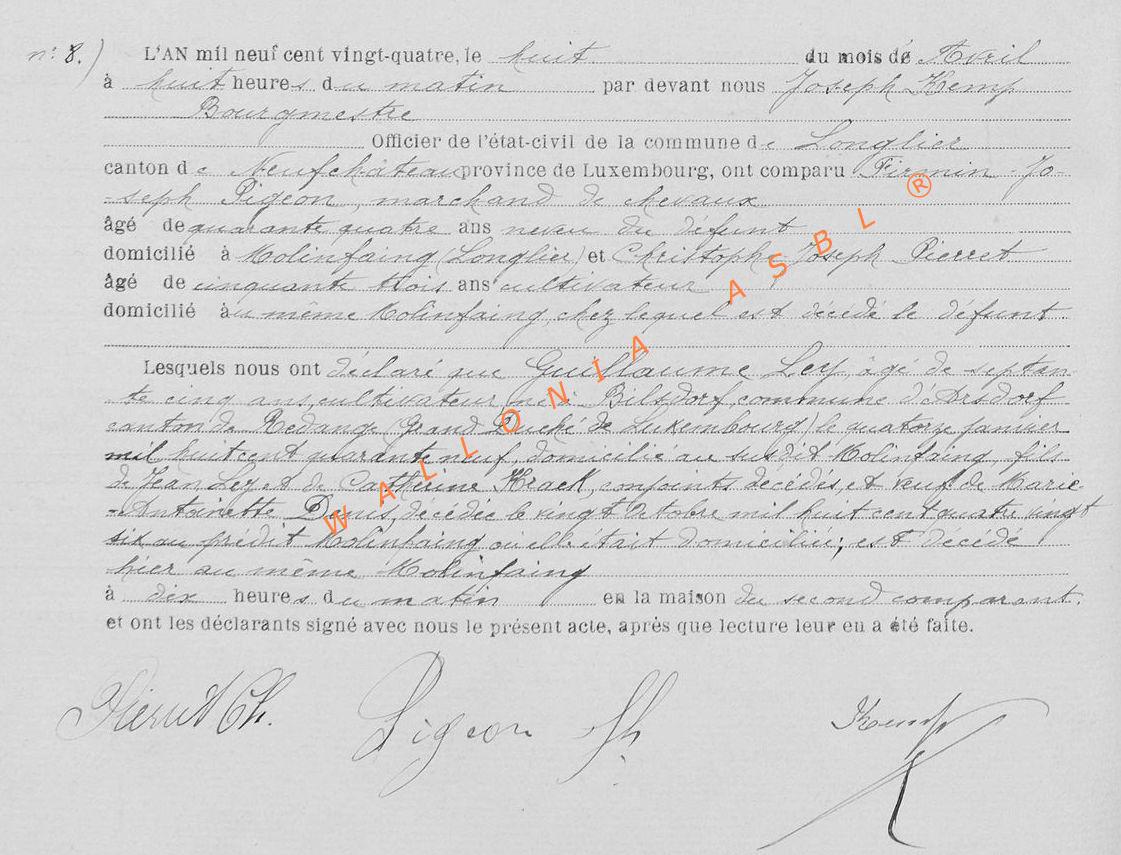 n° 8.) L'AN mil neuf cent vingt-quatre, le huit du mois de Avril
à huit heures du matin par devant nous Joseph Kemp
Bourgmestre
Officier de l'état-civil de la commune de Longlier
canton de Neufchâteau province de Luxembourg, ont comparu Firmin Jo-
-seph Pigeon, marchand de chevaux
âgé de quarante quatre ans neveu du défunt
domicilié à Molinfaing (Longlier) et Christophe-Joseph Pierret
âgé de cinquante trois ans cultivateur
domicilié au même Molinfaing, chez lequel est décédé le défunt
Lesquels nous ont déclaré que Guillaume Ley, âgé de septan-
-te cinq ans, cultivateur, né à Bilsdorf, commune d'Arsdorf
canton de Redange (Grand Duché de Luxembourg) le quatorze janvier
mil huit cent quarante neuf, domicilié au susdit Molinfaing, fils
de Jean Ley et de Catherine Krack, conjoints décédés, et veuf de Marie
-Antoinette Denis, décédée le vingt octobre mil huit cent quatre vingt
six au prédit Molinfaing où elle était domiciliée; est décédé
hier au même Molinfaing
à dix heures du matin en la maison du second comparant.
et ont les déclarants signé avec nous le présent acte, après que lecture leur en a été faite.
Pierret Ch. Pigeon Kemp
WALLONIA ASBL ®